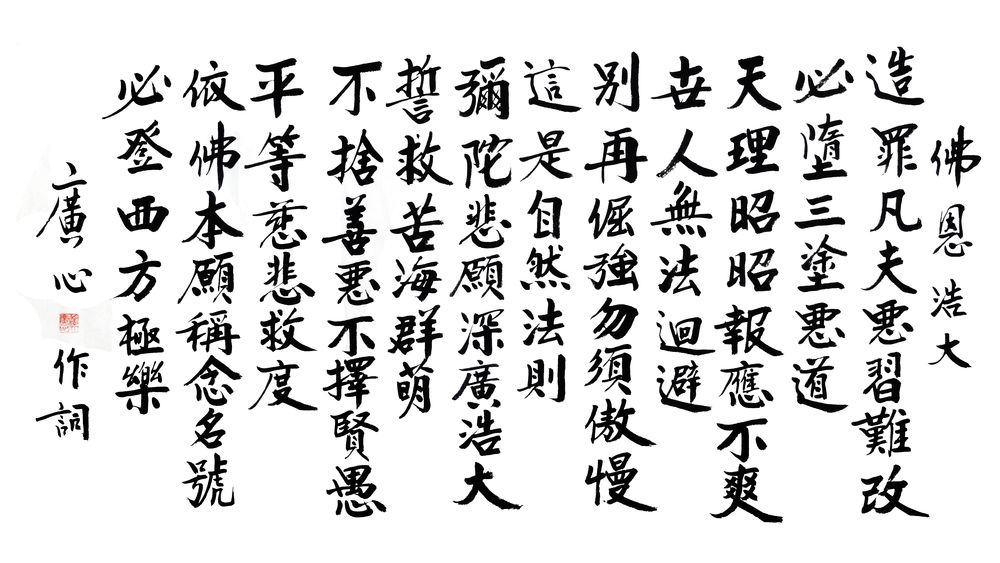 佛恩浩大
造罪凡夫惡習難改
必墮三塗惡道
天理昭昭報應不爽
世人無法迴避
别再倔強勿須傲慢
這是自然法則
彌陀悲願深廣浩大
誓救苦海群萌
不捨善惡不擇賢愚
平等慈悲救度
依佛本願稱念名號
必登西方極樂
廣心作詞